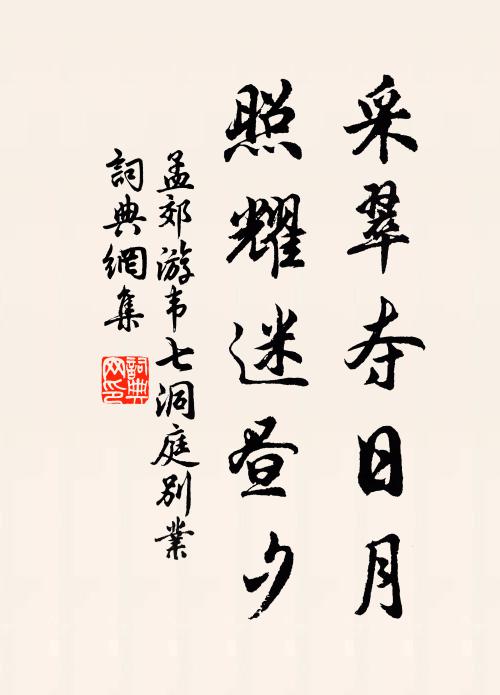 采翠夺日月
照耀迷昼夕
孟郊游韦七洞庭别业
詞典網集
詞典网印